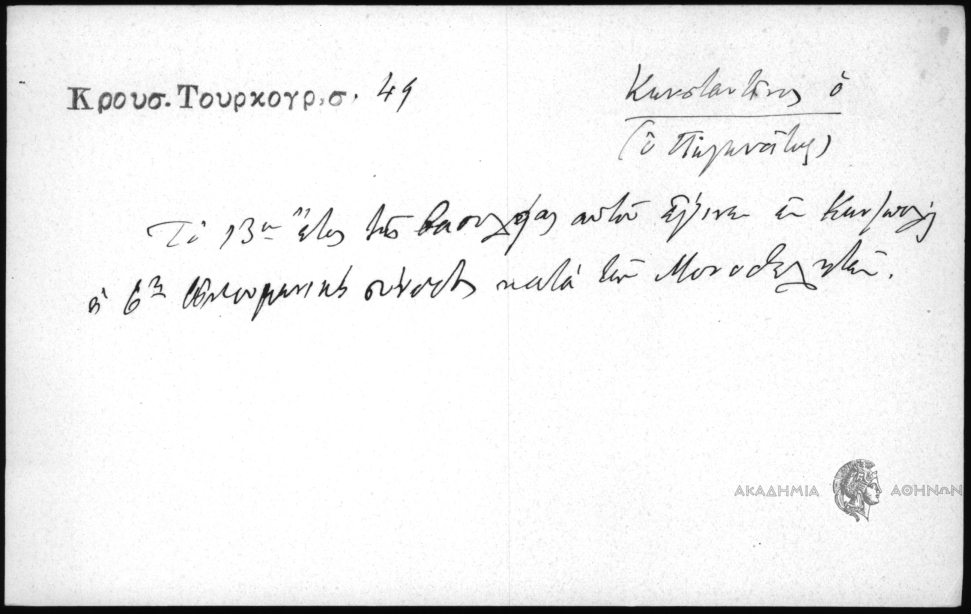 Κρουσ. Τουρκογρ. σ. 49
Κωνσταντῖνος ὁ
(ὁ Πωγωνᾶτος)
Τὸ 13ον ἔτος τῆς βασιλείας αὐτοῦ ἐγένετο ἐν Κων/πόλει
ἡ 6η Οἰκουμενικὴ σύνοδος κατὰ τῶν Μονοθελητῶν.
ΑΚΑΔΗΜΙΑ ΑΘΗΝΩΝ